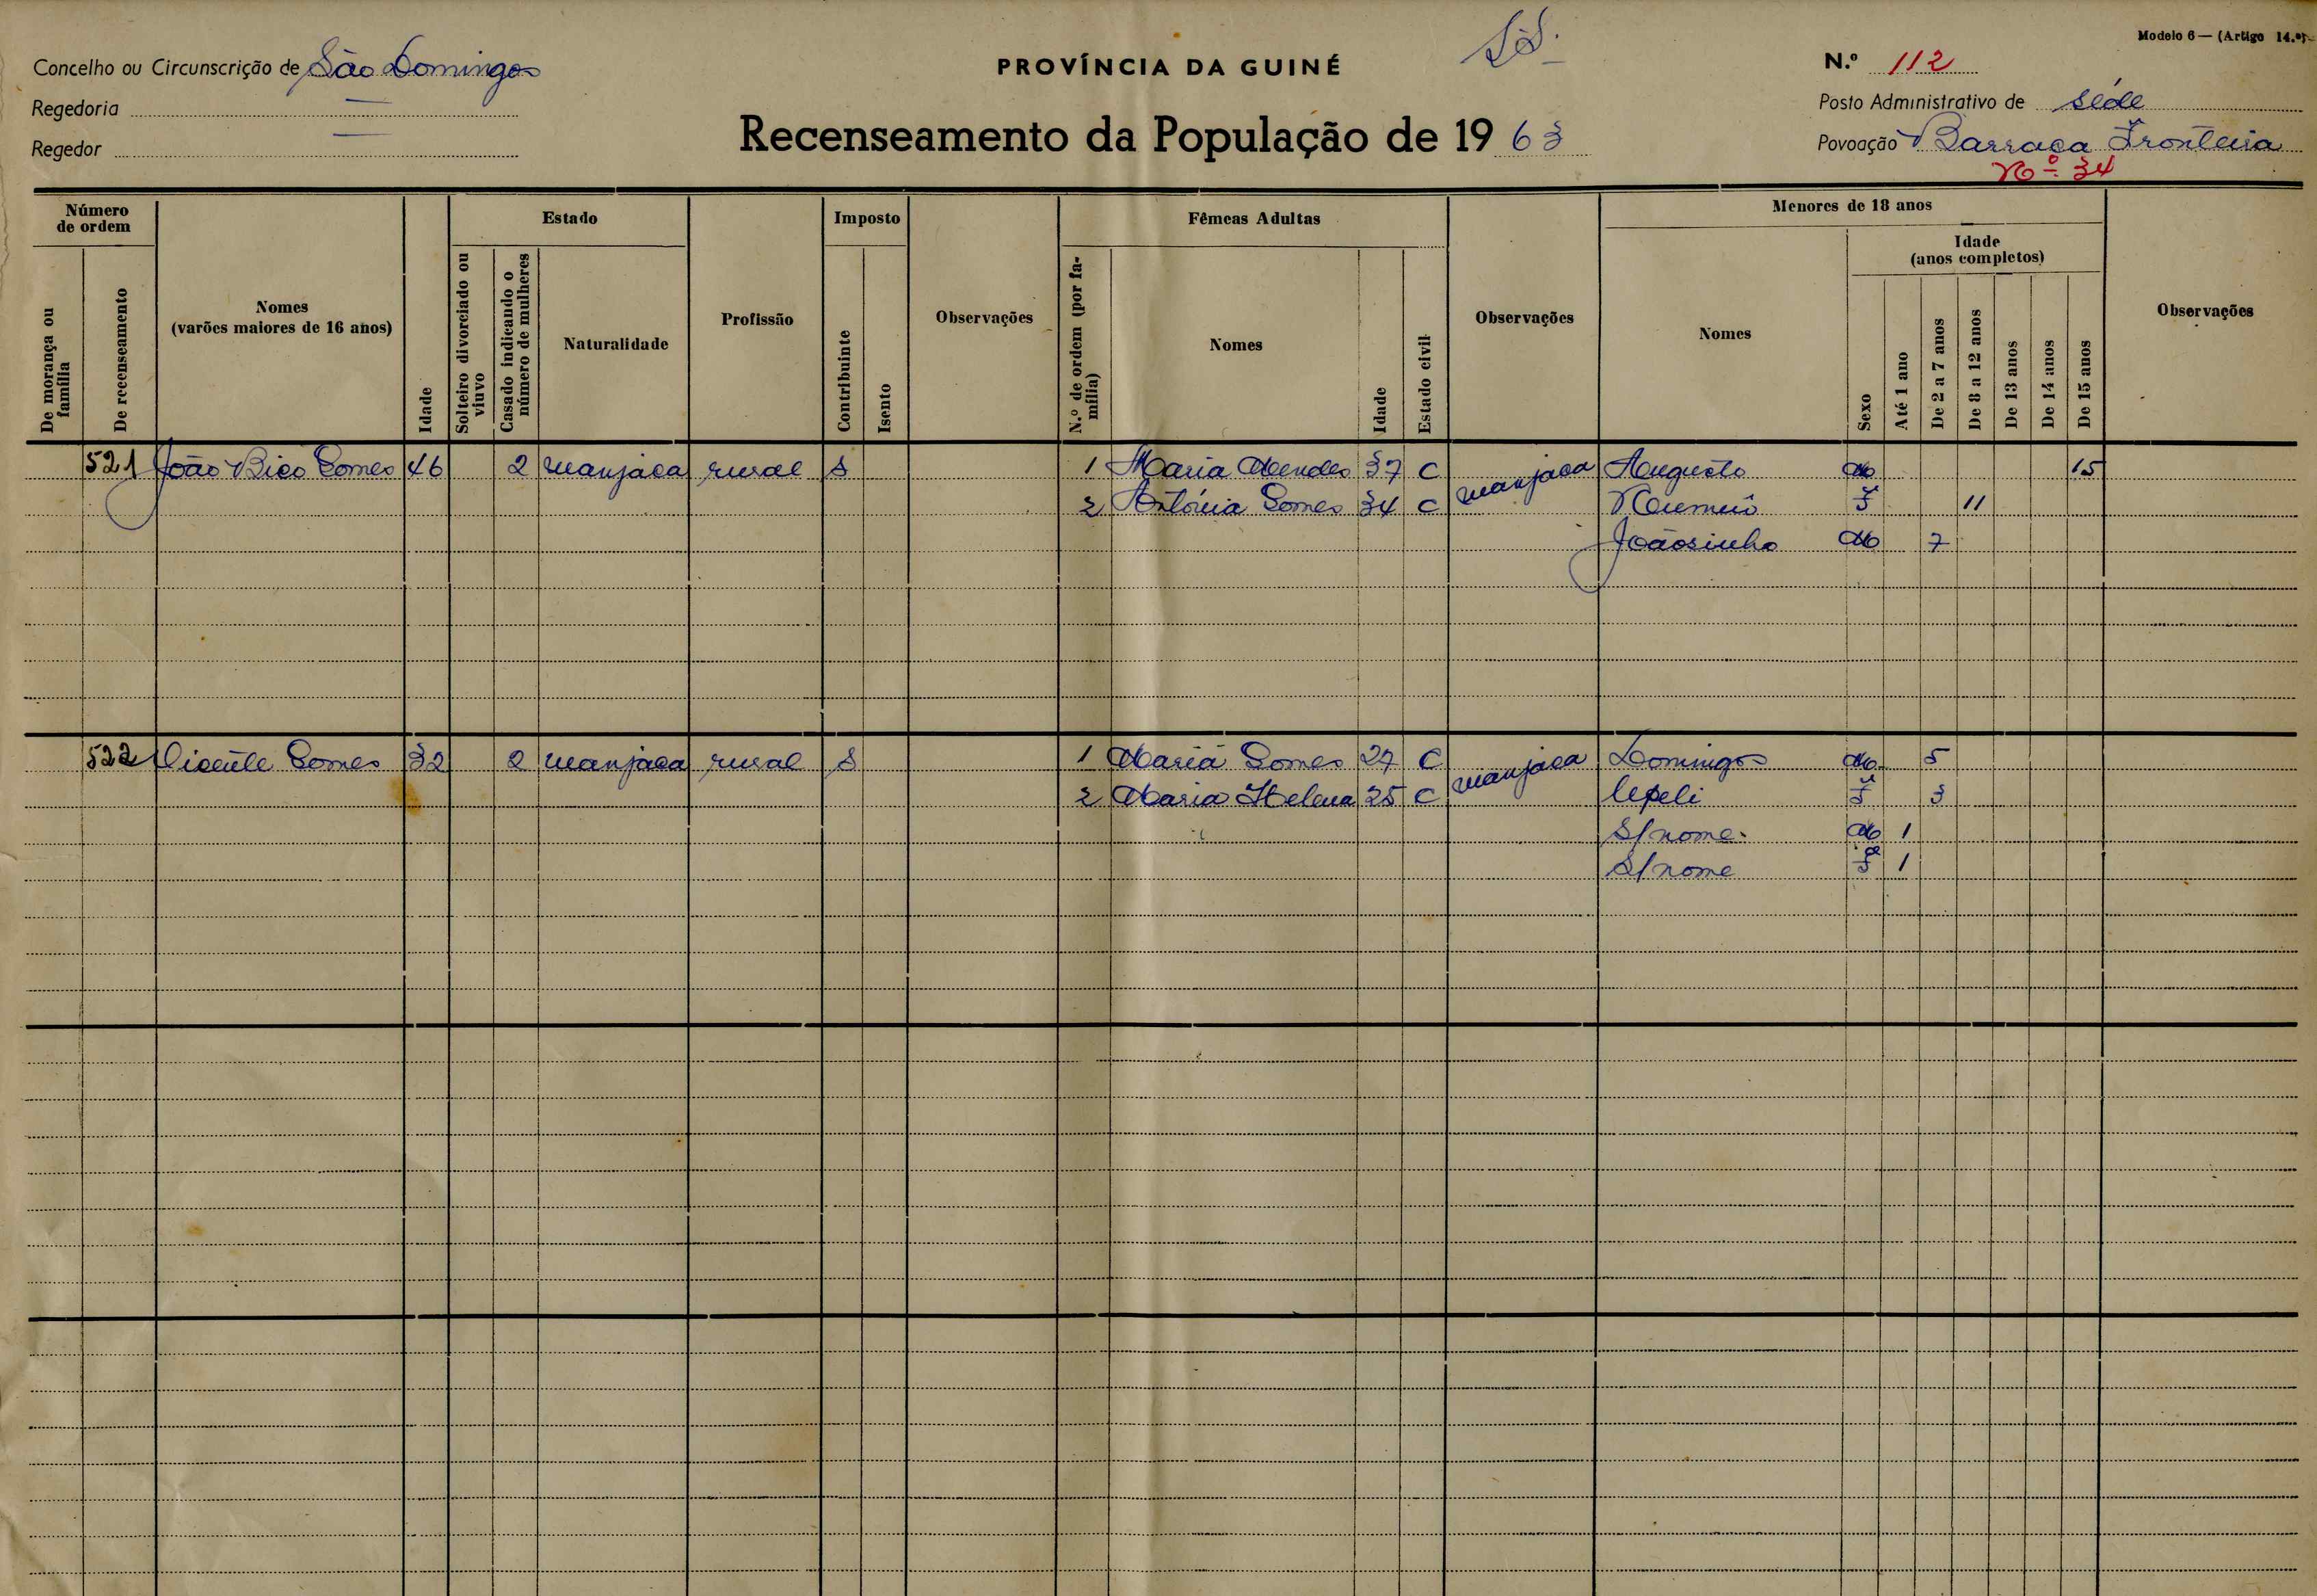 Modelo 6 — (Artigo 14.º)
Concelho ou Circunscrição de São Domingos
PROVÍNCIA DA GUINÉ
N.º 112
Regedoria —
Posto Administrativo de Séde
Regedor —
Recenseamento da População de 1963
Povoação Barraca Fronteira
Nº 34
Número de ordem
De morança ou família
De recenseamento
Nomes
(varões maiores de 16 anos)
Idade
Estado
Solteiro divorciado ou viuvo
Casado indicando o número de mulheres
Naturalidade
Profissão
Imposto
Contribuinte
Isento
Observações
Fêmeas Adultas
N.º de ordem (por família)
Nomes
Idade
Estado civil
Observações
Menores de 18 anos
Nomes
Sexo
Idade
(anos completos)
Até 1 ano
De 2 a 7 anos
De 8 a 12 anos
De 13 anos
De 14 anos
De 15 anos
Observações
521 João Bico Gomes 46 2 manjaca rural S 1 Maria Mendes 37 C manjaca Augusto M 15
2 Antónia Gomes 34 C F 11
Joãosinho M 7
522 Vicente Gomes 32 2 manjaca rural S 1 Maria Gomes 27 C manjaca Domingos M 5
2 Maria Helena 25 C F 3
S/nome M 1
S/nome F 1